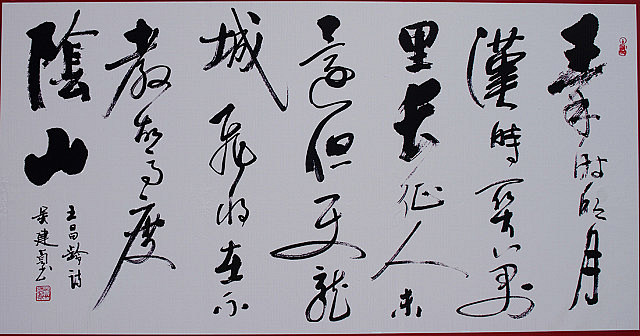 秦時明月
漢時關萬
里長征人未
還但使龍
城飛將在不
教胡馬度
陰山
王昌齡詩
吳建書